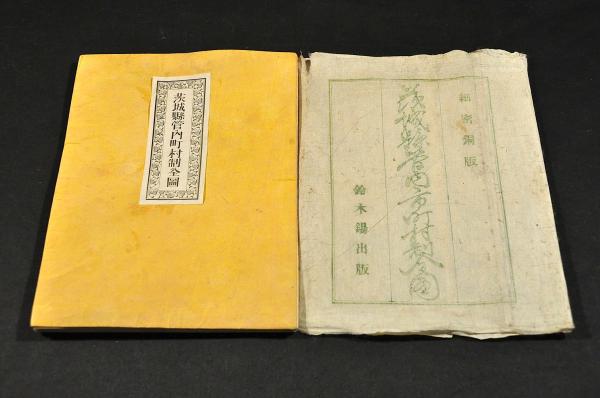 茨城縣管内町村制全圖
細密銅版
茨城縣管内市町村制全圖
鈴木錫出版